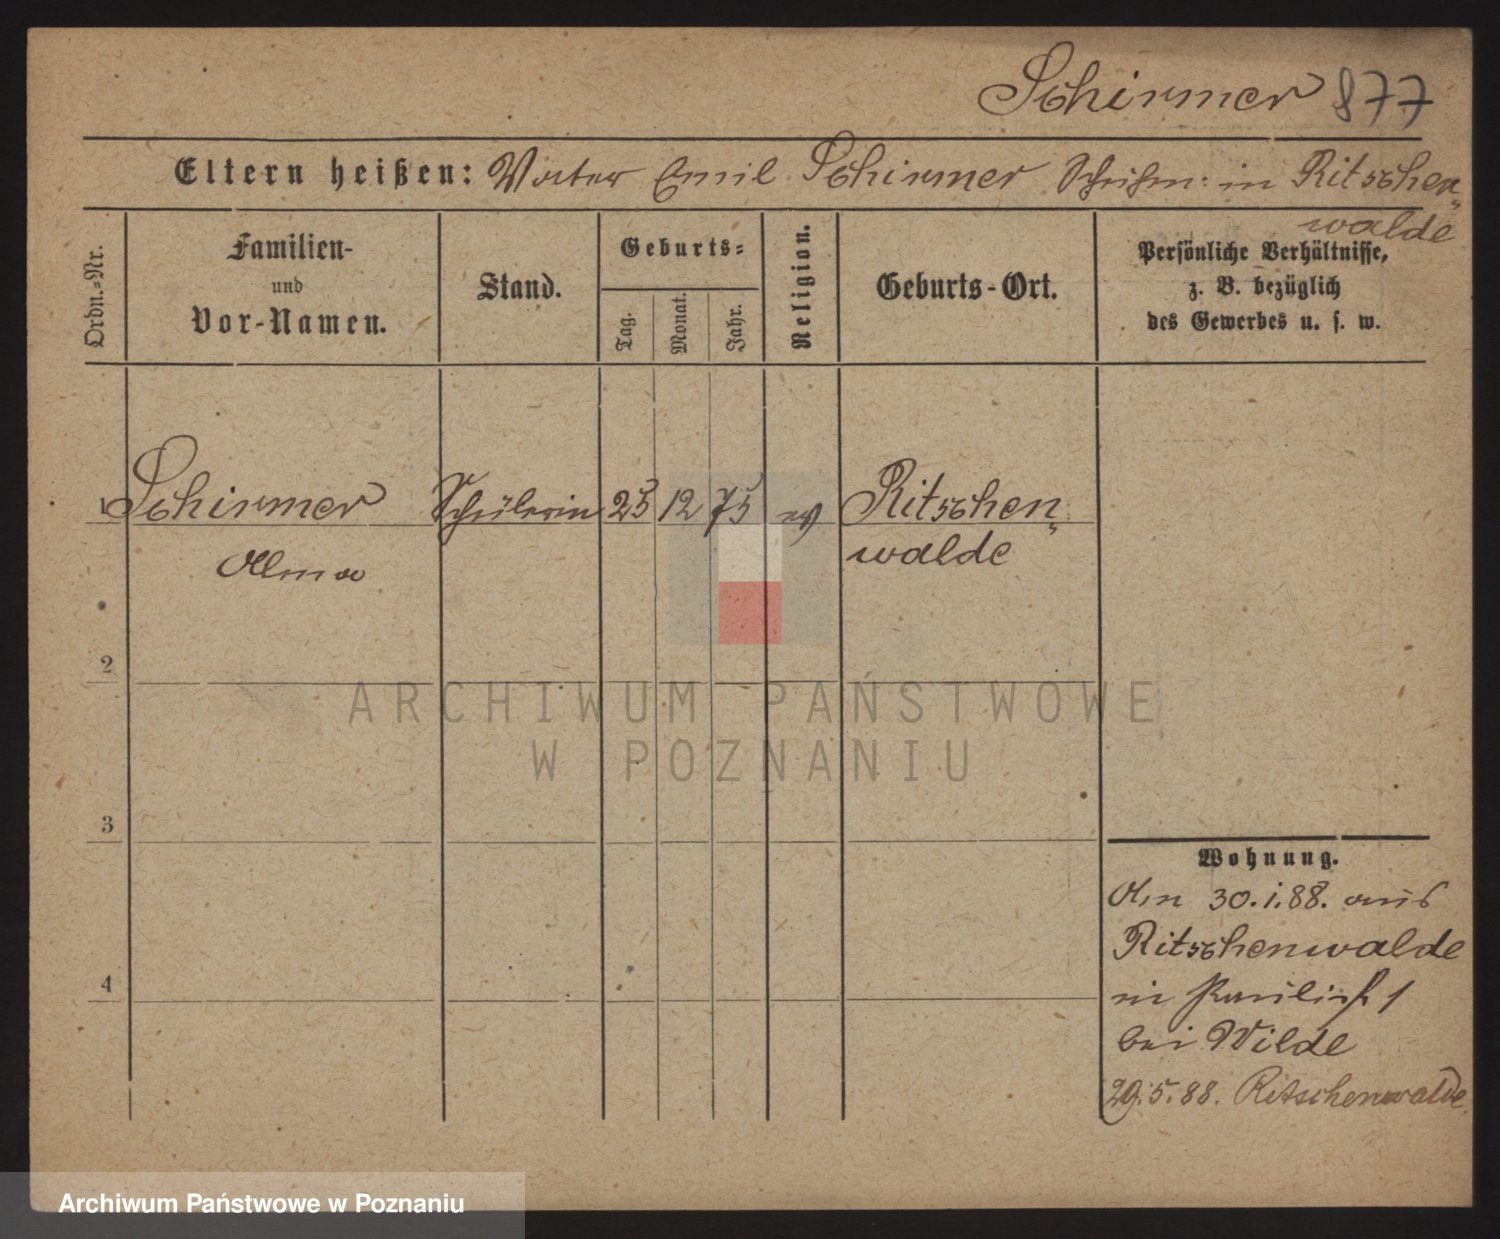 Schirmer 877
Eltern heißen: Vater Emil Schirmer in Ritschen-
walde
Ordn.-Nr.
Familien-
und
Vor-Namen.
Stand.
Geburts-
Tag.
Monat.
Jahr.
Religion.
Geburts-Ort.
Persönliche Verhältnisse,
z. B. bezüglich
des Gewerbes u. s. w.
1 Schirmer Schülerin 25 12 75 ev Ritschen-
Alma walde
2
3
4
ARCHIWUM PAŃSTWOWE
W POZNANIU
Wohnung.
Am 30.1.88. aus
Ritschenwalde
in Paulist 1
bei Wilde
29.5.88. Ritschenwalde
Archiwum Państwowe w Poznaniu